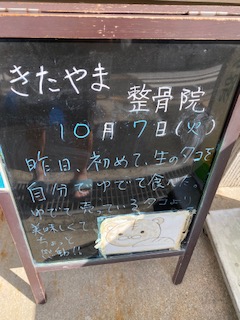 きたやま
整骨院
10月7日(火)
昨日、初めて、生のタコを
自分でゆでて食べた。
ゆでて売っているタコより
美味しくて、
ちょっと
感動!!